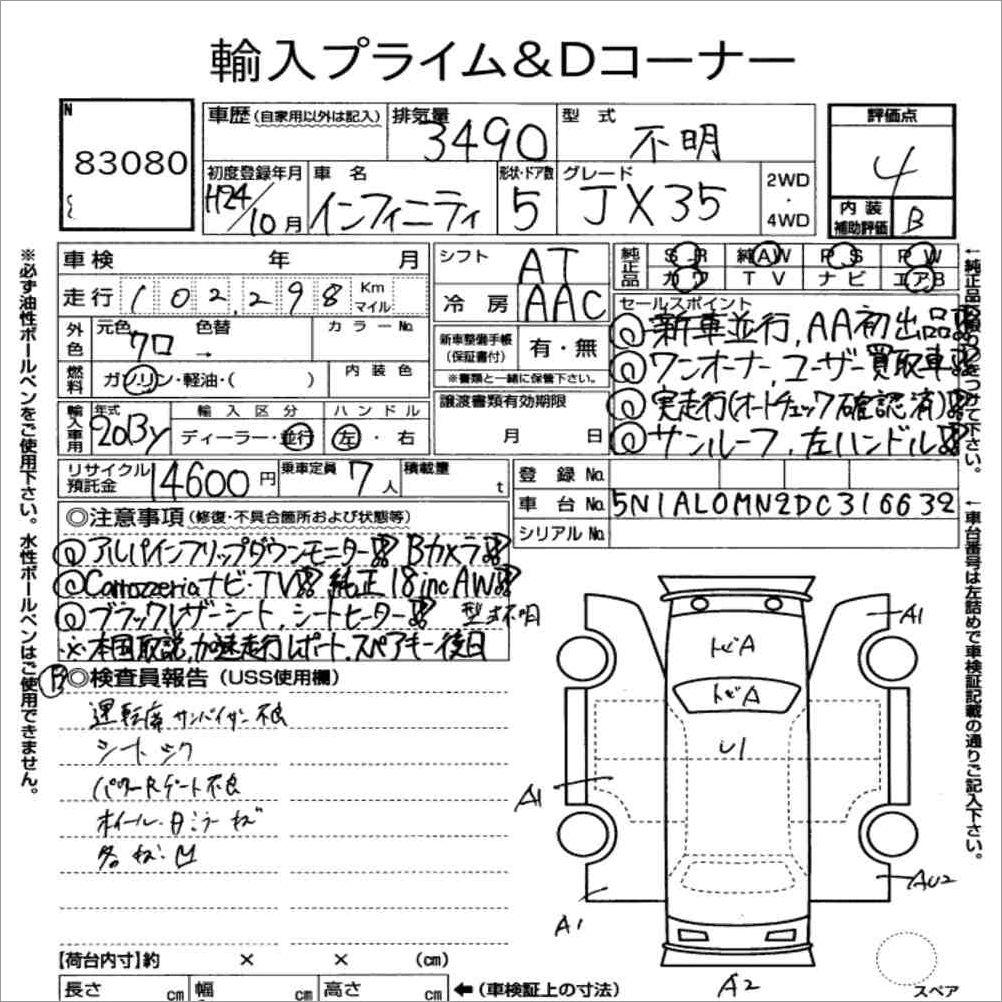 輸入プライム&Dコーナー
N
83080
車歴(自家用以外は記入)
排気量
3490
型式
不明
評価点
4
初度登録年月
H24/10月
車名
インフィニティ
形状・ドア数
5
グレード
JX35
2WD
・
4WD
内装
補助評価
B
車検 年 月
シフト
AT
純正品
SR 純AW PS PW
カワ TV ナビ エアB
走行
102,298
Km
マイル
冷房
AAC
セールスポイント
◎新車並行,AA初出品!!
◎ワンオーナー,ユーザー買取車!!
◎実走行(オートチェック確認済)!!
◎サンルーフ,左ハンドル!!
外色
元色
クロ
色替
→
カラーNo.
新車整備手帳
(保証書付)
有・無
※書類と一緒に保管下さい。
燃料
ガソリン・軽油・( )
内装色
譲渡書類有効期限
月 日
輸入車用
年式
2013y
輸入区分
ディーラー・並行
ハンドル
左・右
リサイクル
預託金
14600円
乗車定員
7人
積載量
t
登録No.
車台No.
5N1AL0MN2DC316632
シリアルNo.
◎注意事項(修復・不具合箇所および状態等)
◎アルパインフリップダウンモニター!! Bカメラ!!
◎Carrozzeriaナビ・TV!! 純正18incAW!!
◎ブラックレザーシート,シートヒーター!! 型式不明
※本国取説,加速走行レポート,スペアキー後日
B
◎検査員報告(USS使用欄)
運転席サンバイザー不良
シート シワ
パワーRゲート不良
各キズ・凹
A1
トビA
トビA
U1
A1
A1
AU2
A2
スペア
【荷台内寸】約 × × (cm)
長さ cm 幅 cm 高さ cm ←(車検証上の寸法)
※必ず油性ボールペンをご使用下さい。水性ボールペンはご使用できません。
←車台番号は左詰めで車検証記載の通りご記入下さい。